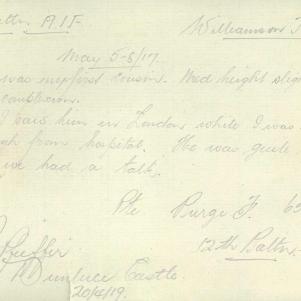 Battn A.I.F. Williamson
May 5-8/17.
was my first cousin. Med height
I saw him in London while I was
from hospital. He was quite
we had a talk.
Pte Purge F. 63
12th Battn
Dunluce Castle
20/4/19.